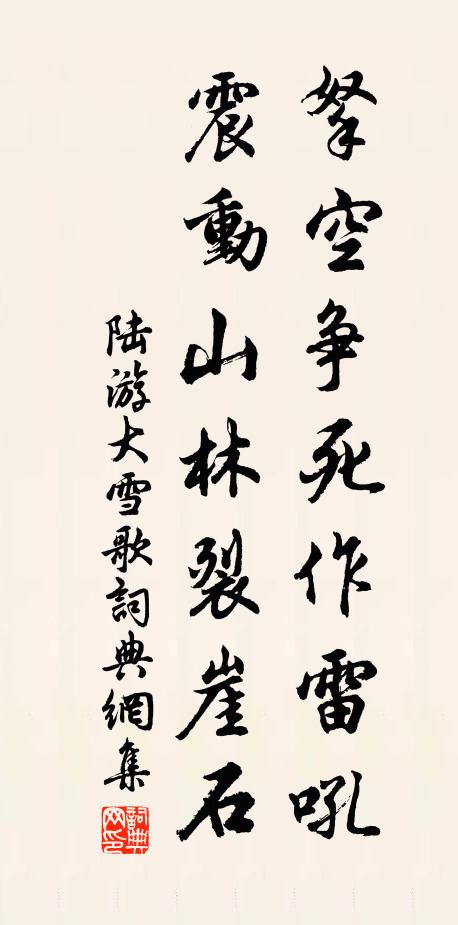 拏空争死作雷吼
震動山林裂崖石
陆游大雪歌詞典網集
詞典
网印